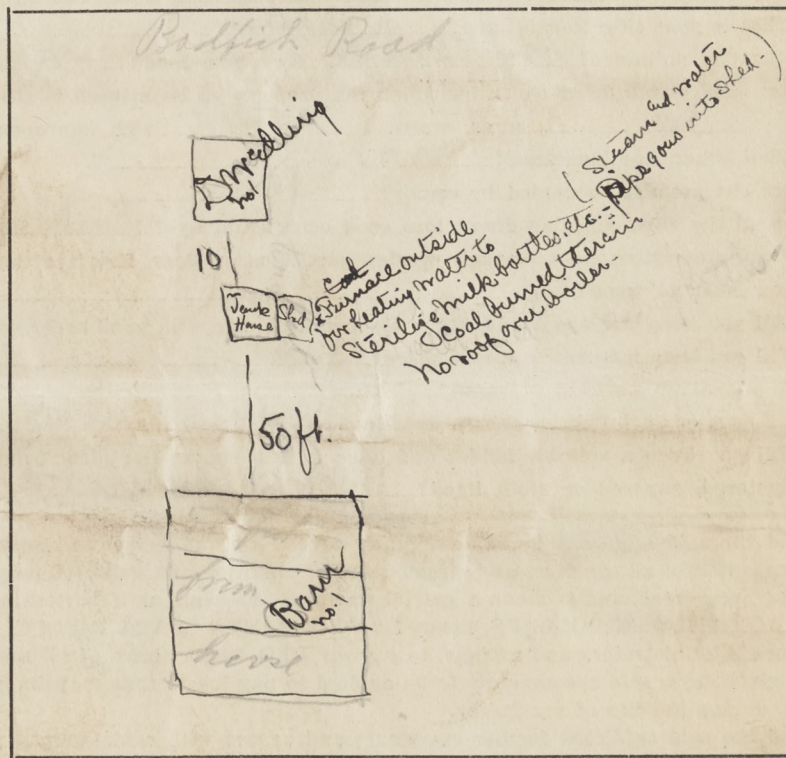 Badfish Road
Dwelling
no. 1
10
Tank
House
Shed
Coal
x Furnace outside
for heating water to
sterilize milk bottles, etc. -
Coal burned therein
No roof over boiler.
(Steam and water
pipe goes into shed.)
50 ft.
from
Barn
no. 1
house